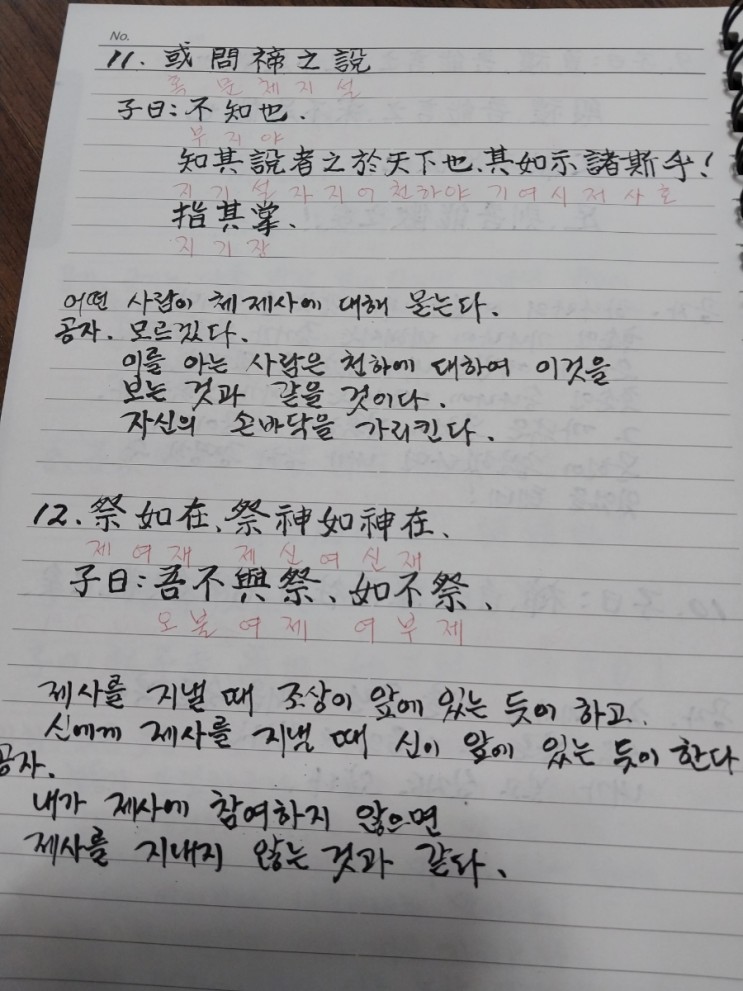 No.
11. 或問禘之說
혹 문 체 지 설
子曰: 不知也.
부 지 야
知其說者之於天下也, 其如示諸斯乎!
지 기 설 자 지 어 천 하 야 기 여 시 저 사 호
指其掌.
지 기 장
어떤 사람이 체 제사에 대해 묻는다.
공자. 모르겠다.
이를 아는 사람은 천하에 대하여 이것을
보는 것과 같을 것이다.
자신의 손바닥을 가리킨다.
12. 祭如在, 祭神如神在.
제 여 재 제 신 여 신 재
子曰: 吾不與祭, 如不祭.
오 불 여 제 여 부 제
제사를 지낼 때 조상이 앞에 있는 듯이 하고.
신에게 제사를 지낼 때 신이 앞에 있는 듯이 한다
공자.
내가 제사에 참여하지 않으면
제사를 지내지 않는 것과 같다.